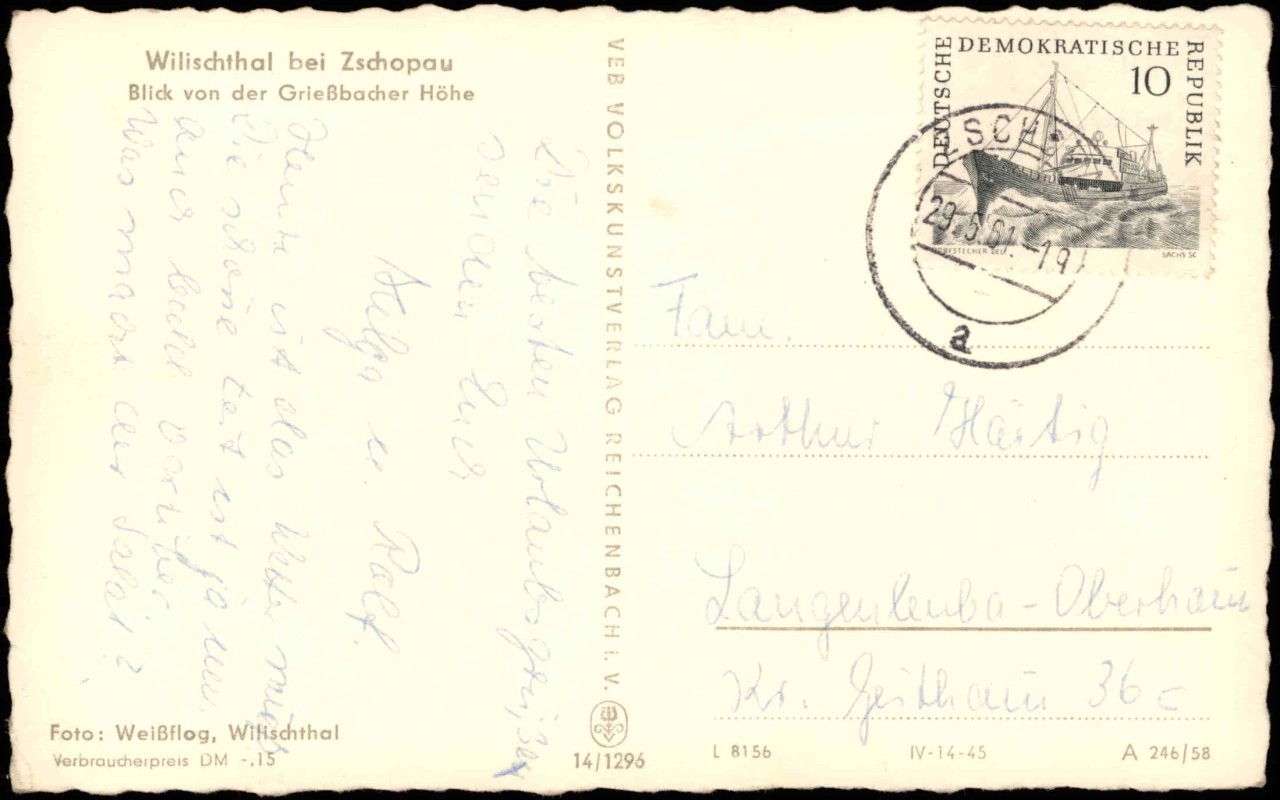 Wilischthal bei Zschopau
Blick von der Grießbacher Höhe
Die besten Urlaubsgrüße
senden Euch
Helga u. Rolf.
Heute ist das Wetter nicht
Die schöne Zeit ist ja nun
auch bald vorüber
Was macht der Salat?
Foto: Weißflog, Wilischthal
Verbraucherpreis DM -.15
VEB VOLKSKUNSTVERLAG REICHENBACH i. V.
14/1296
DEUTSCHE DEMOKRATISCHE REPUBLIK
10
DORFSTECHER DEL.
SACHS SC
29.5.61.-19
a
Fam.
Arthur Härtig
Langenleuba-Oberhain
Kr. Geithain 36c
L 8156
IV-14-45
A 246/58